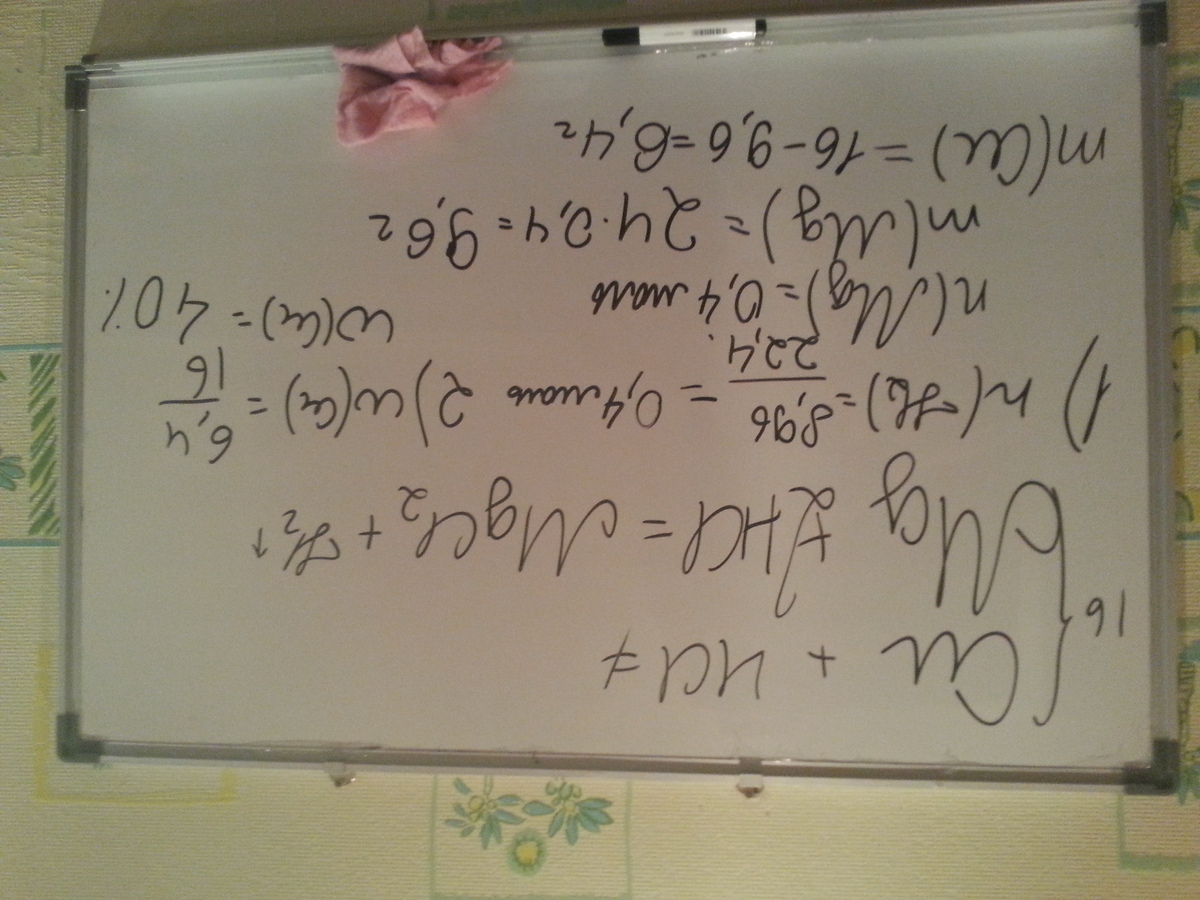 16 { Cu + HCl ≠
Mg + 2HCl = MgCl₂ + H₂↑
1) n(H₂) = 8,96 / 22,4 = 0,4 моль
n(Mg) = 0,4 моль
m(Mg) = 24 · 0,4 = 9,6 г
m(Cu) = 16 - 9,6 = 6,4 г
2) w(Cu) = 6,4 / 16
w(Cu) = 40%